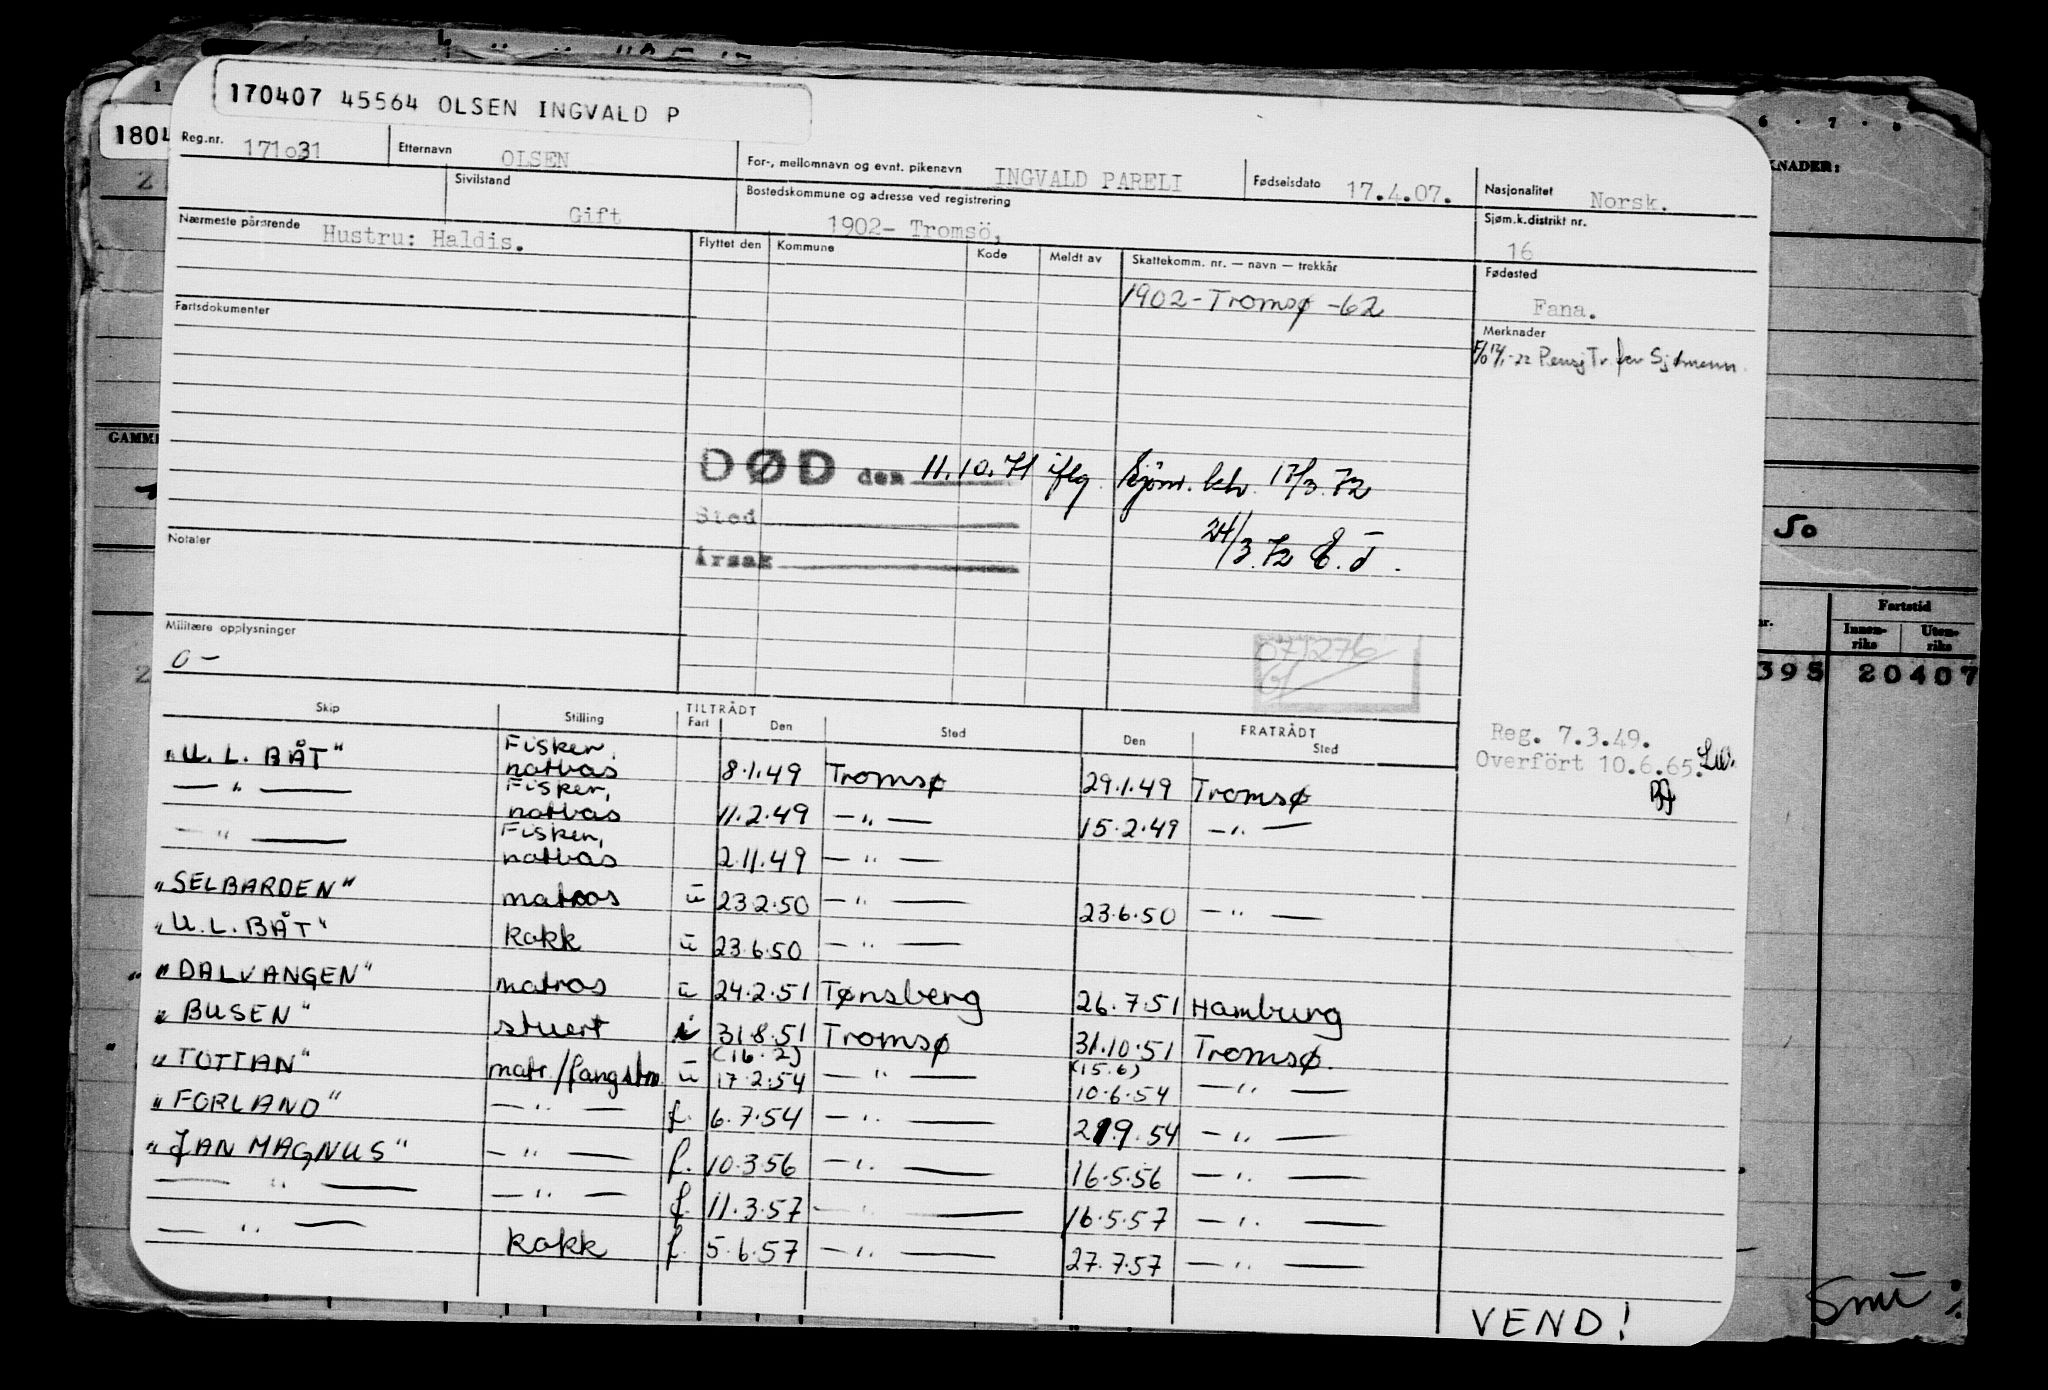 170407 45564 OLSEN INGVALD P
1804
Reg.nr. 171031 Etternavn OLSEN For-, mellomnavn og evnt. pikenavn INGVALD PARELI Fødselsdato 17.4.07. Nasjonalitet Norsk.
Sivilstand Gift Bostedskommune og adresse ved registrering 1902- Tromsö, Sjøm.k.distrikt nr. 16
Nærmeste pårørende Hustru: Haldis. Flyttet den Kommune Kode Meldt av Skattekomm. nr. — navn — trekkår Fødested Fana.
1902-Tromsø -62
Fartsdokumenter
Merknader
Pensj Tr. for Sjømenn.
DØD den 11.10.71 iflg. Sjöm. ktr. 17/3.72
Sted
24/3.72 E.T.
Årsak
Notater
Militære opplysninger
0 -
071276
Reg. 7.3.49.
Overfört 10.6.65.
Skip Stilling TILTRÅDT Fart Den Sted FRATRÅDT Den Sted
"U. L. BÅT" Fisker, notbas 8.1.49 Tromsø 29.1.49 Tromsø
— " — Fisker, notbas 11.2.49 — " — 15.2.49 — " —
— " — Fisker, notbas 2.11.49 — " —
"SELBARDEN" matros u 23.2.50 — " — 23.6.50 — " —
"U. L. BÅT" kokk u 23.6.50 — " —
"DALVANGEN" matros u 24.2.51 Tønsberg 26.7.51 Hamburg
"BUSEN" stuert i 31.8.51 Tromsø 31.10.51 Tromsø.
"TOTTAN" matr./fangstm. u (16.2) 17.2.54 — " — (15.6) 10.6.54 — " —
"FORLAND" — " — f. 6.7.54 — " — 21.9.54 — " —
"JAN MAGNUS" — " — f. 10.3.56 — " — 16.5.56 — " —
— " — — " — f. 11.3.57 — " — 16.5.57 — " —
— " — kokk f. 5.6.57 — " — 27.7.57 — " —
VEND!
KNADER:
GAMM
50
Fartstid
Innen-riks Uten-riks
395 20407